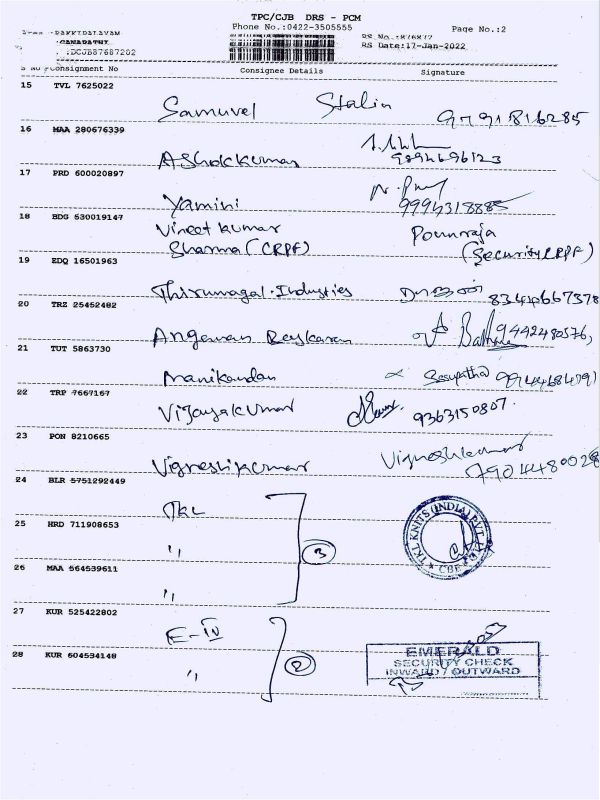 TPC/CJB DRS - PCM
Phone No.:0422-3505555
Page No.:2
RS No.:876877
RS Date:17-Jan-2022
:DCJB87687202
S No Consignment No Consignee Details Signature
15 TVL 7625022
Samuvel Stalin 9791816285
16 MAA 280676339
Ashokkumar 9894696123
17 PRD 600020897
Yamini 9994318885
18 BDG 530019147
Vineet kumar Sharma (CRPF) Ponnraja (Security CRPF)
19 EDQ 16501963
Thirumagal Industries 8344667378
20 TRZ 25452482
9442480576,
21 TUT 5863730
Manikandan
22 TRP 7667167
Vijayakumar 9363150807.
23 PON 8210665
Vigneshkumar Vigneshkumar 79014480028
24 BLR 5751292449
TKL
25 HRD 711908653
"
3
26 MAA 564539611
"
TKL KNITS (INDIA) PVT. LTD
CBE
27 KUR 525422802
E-IV
28 KUR 604534148
"
2
EMERALD
SECURITY CHECK
INWARD / OUTWARD